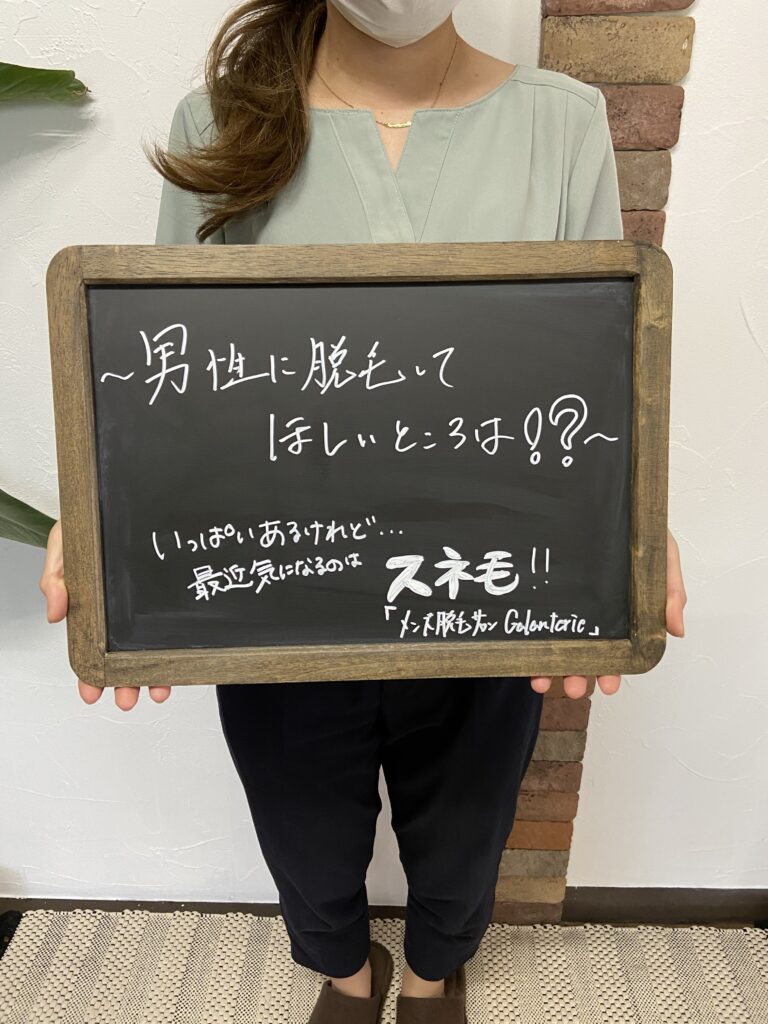 ～男性に脱毛して
ほしいところは!?～
いっぱいあるけれど…
最近気になるのは
スネ毛!!
「メンズ脱毛サロン Galanterie」